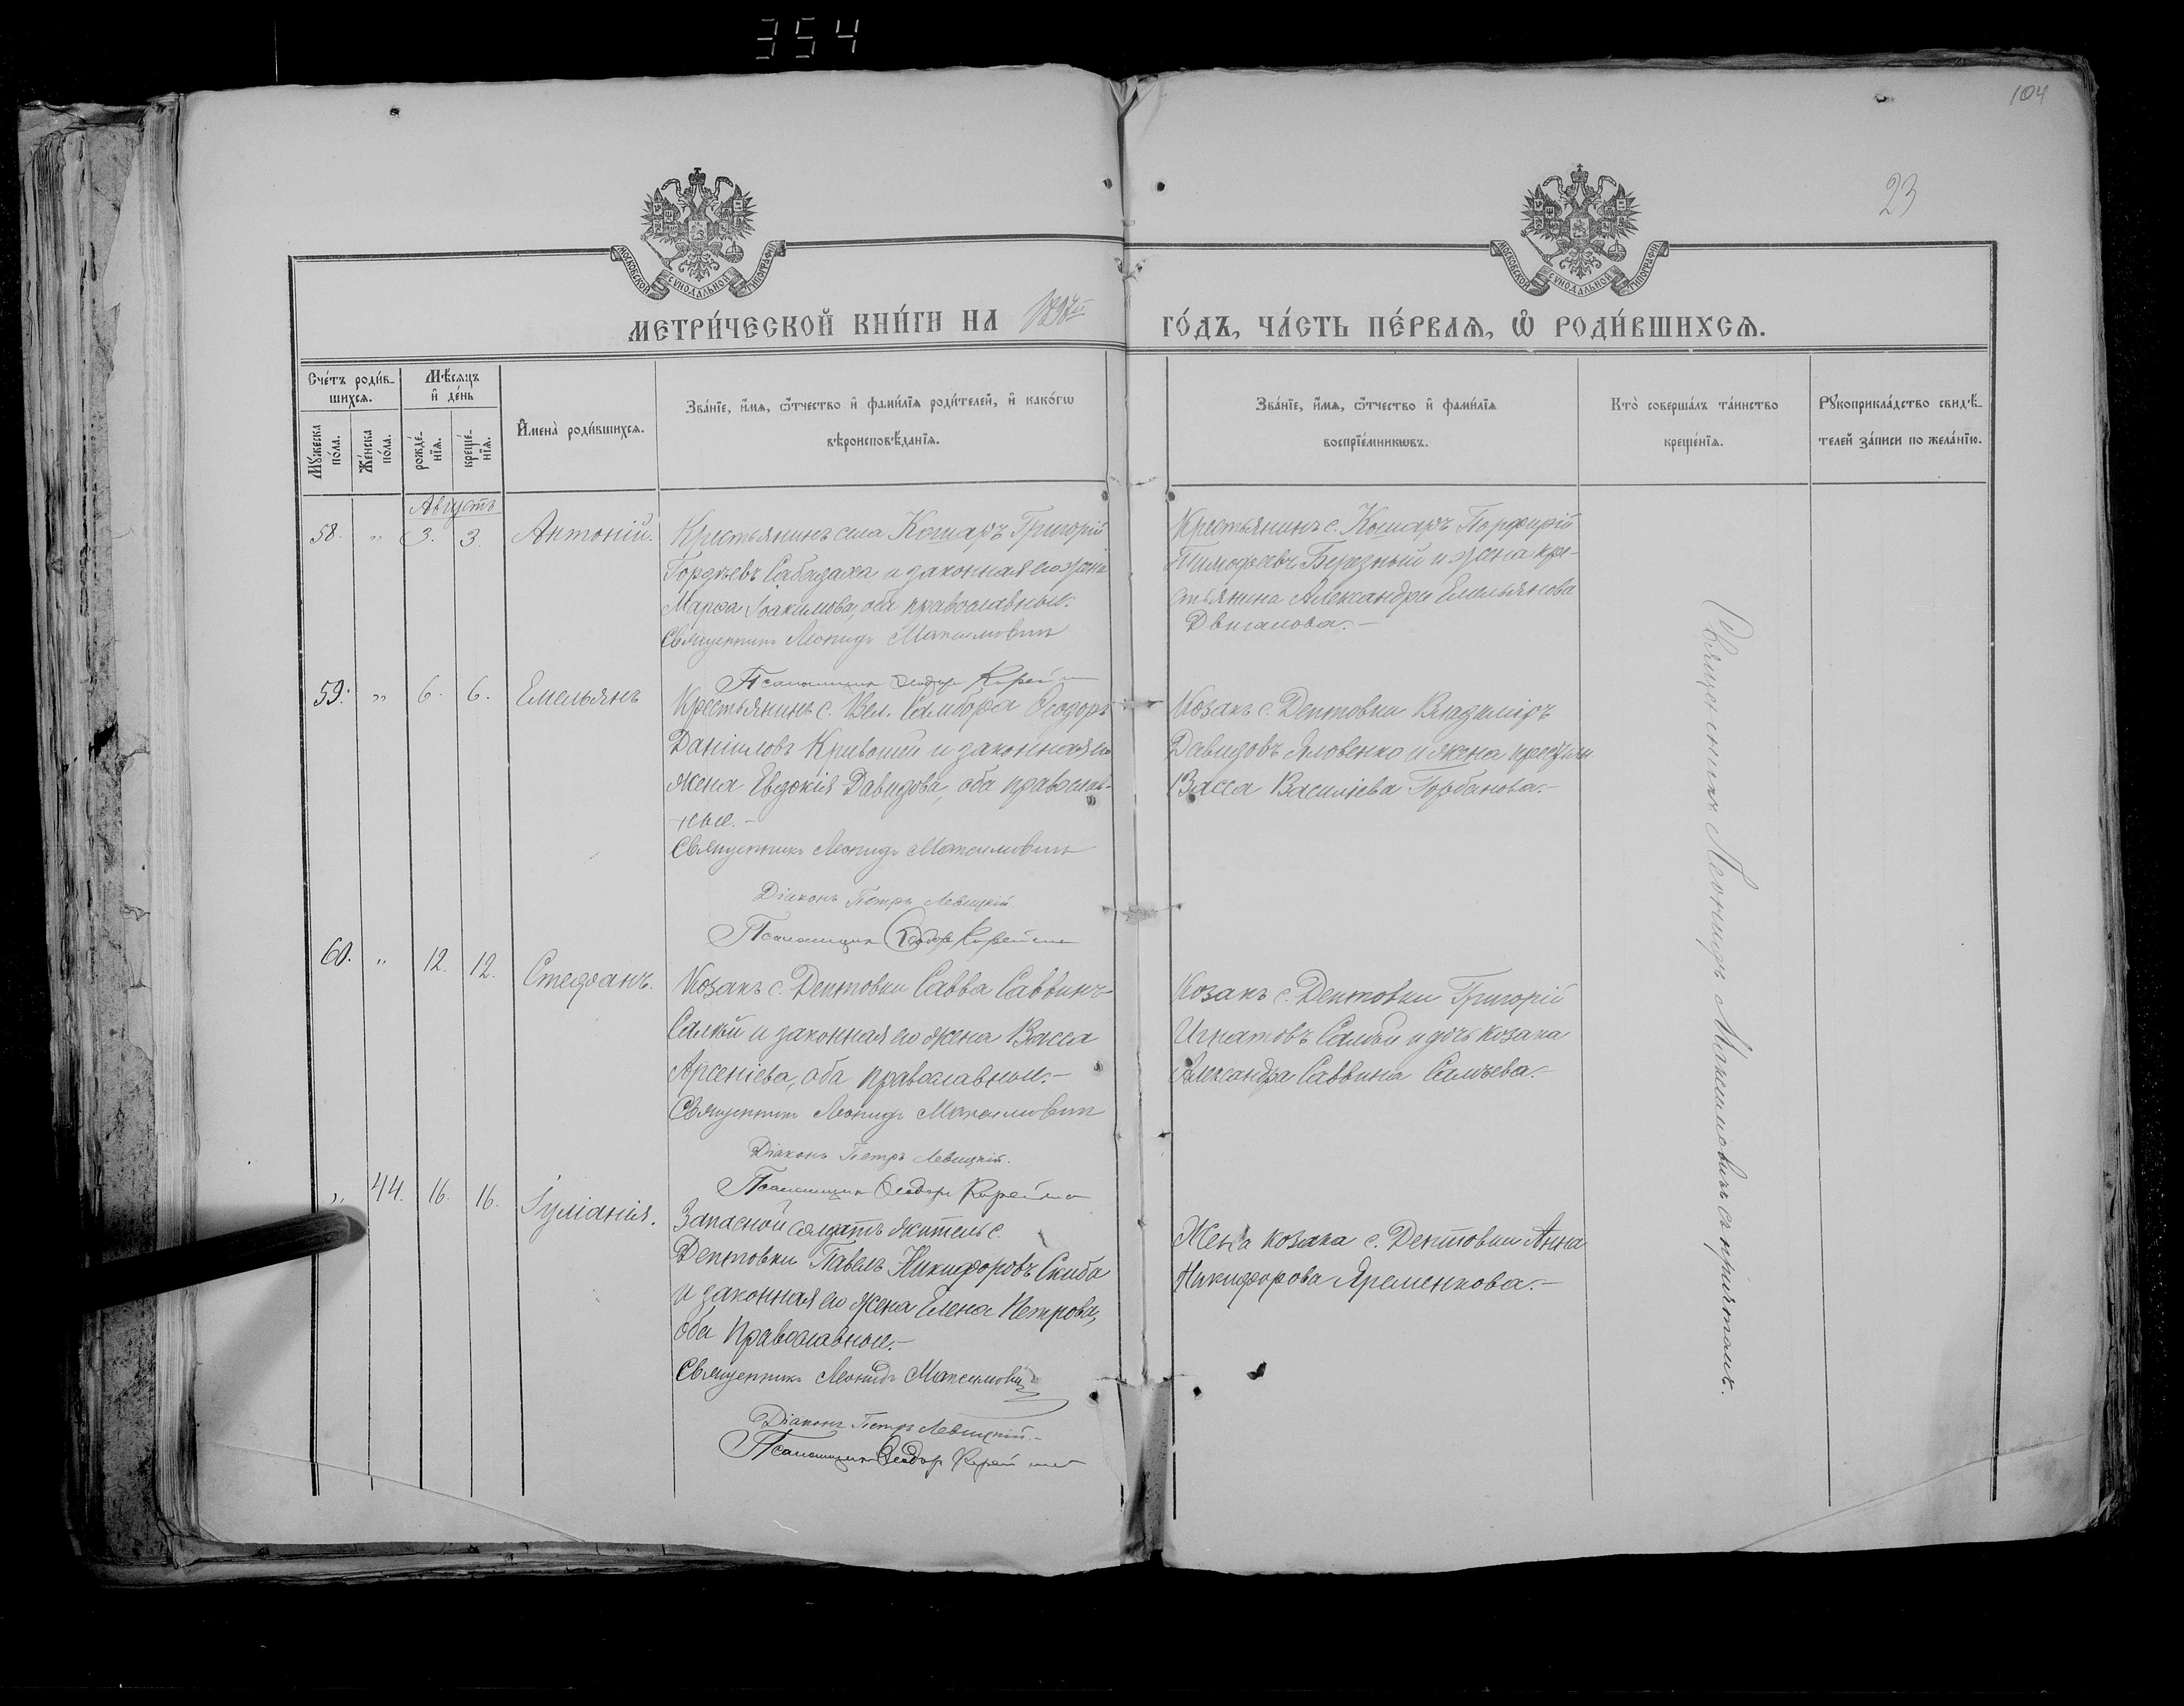 354
104
23
МОСКОВСКОЙ СѴНОДАЛЬНОЙ ТИПОГРАФІИ
МОСКОВСКОЙ СѴНОДАЛЬНОЙ ТИПОГРАФІИ
МЕТРИ́ЧЕСКОЙ КНИ́ГИ НА
ГО́ДЪ, ЧА́СТЬ ПЕ́РВАЯ, Ѡ РОДИ́ВШИХСЯ.
Сче́тъ роди́в-
шихся.
Мѣ́сяцъ
и҆ де́нь
Му́жеска
по́ла.
Же́нска
по́ла.
рожде́-
нїя.
креще́-
нїя.
И҆мена̀ роди́вшихся.
Зва́нїе, и҆́мя, ѻ҆́тчество и҆ фами́лїя роди́телей, и҆ како́гѡ
вѣроисповѣ́данїя.
Зва́нїе, и҆́мя, ѻ҆́тчество и҆ фами́лїя
воспрїе́мникѡвъ.
Кто̀ соверша́лъ та́инство
креще́нїя.
Рꙋкоприкла́дство свидѣ́-
телей за́писи по жела́нїю.
Августъ
58. " 3. 3. Антоній.
Крестьянинъ села Кошаръ Григорій
Гордѣевъ и законная его жена
Марѳа Іоакимова, оба православные.
Священникъ Леонидъ Максимовичъ
Псаломщикъ Ѳеодоръ
Крестьянинъ с. Кошаръ Порфирій
Тимофеевъ Березный и жена кре-
стьянина Александра Емельянова
Двигалова.-
59. " 6. 6. Емельянъ
Крестьянинъ с. Вел. Самбора Ѳеодоръ
Даніиловъ и законная его
жена Евдокія Давидова, оба православ-
ные.-
Священникъ Леонидъ Максимовичъ
Діаконъ Петръ Левицкій
Псаломщикъ Ѳеодоръ
Козакъ с. Дептовки Владиміръ
Давидовъ Яловенко и жена
Васса Василіева Горбанова.-
60. " 12. 12. Стефанъ.
Козакъ с. Дептовки Савва Саввинъ
Салѣй и законная его жена Васса
Арсеніева, оба православные.-
Священникъ Леонидъ Максимовичъ
Діаконъ Петръ Левицкій.
Псаломщикъ Ѳеодоръ
Козакъ с. Дептовки Григорій
Игнатовъ Салѣй и дочь козака
Александра Саввина Салѣева.-
" 44. 16. 16. Іуліанія.
Запасной солдатъ житель с.
Дептовки Павелъ Никифоровъ Скиба
и законная его жена Елена Петрова,
оба православные.-
Священникъ Леонидъ Максимовичъ
Діаконъ Петръ Левицкій.-
Псаломщикъ Ѳеодоръ
Жена козака с. Дептовки Анна
Никифорова Яременкова.-
Священникъ Леонидъ Максимовичъ съ причтомъ.